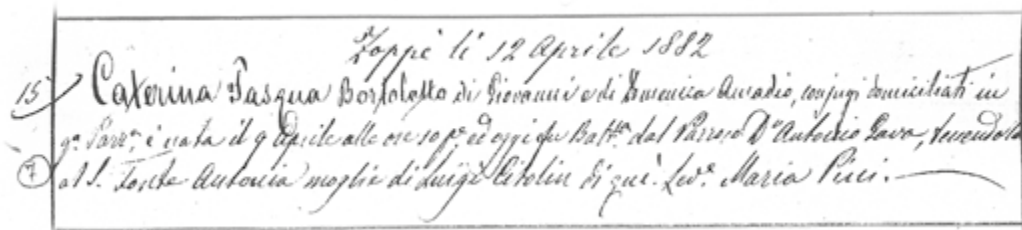 Zoppè li 12 Aprile 1882
15 Caterina Pasqua Bortolotto di Giovanni e di Domenica Amadio, conjugi domiciliati in
qª Parrª è nata il 9 Aprile alle ore 10 pᵉ ed oggi fu Battª dal Parroco Dⁿ Antonio Dava, tenendola
7 al S. Fonte Antonia moglie di Luigi Citolin di qui. Levᵉ Maria Pini.